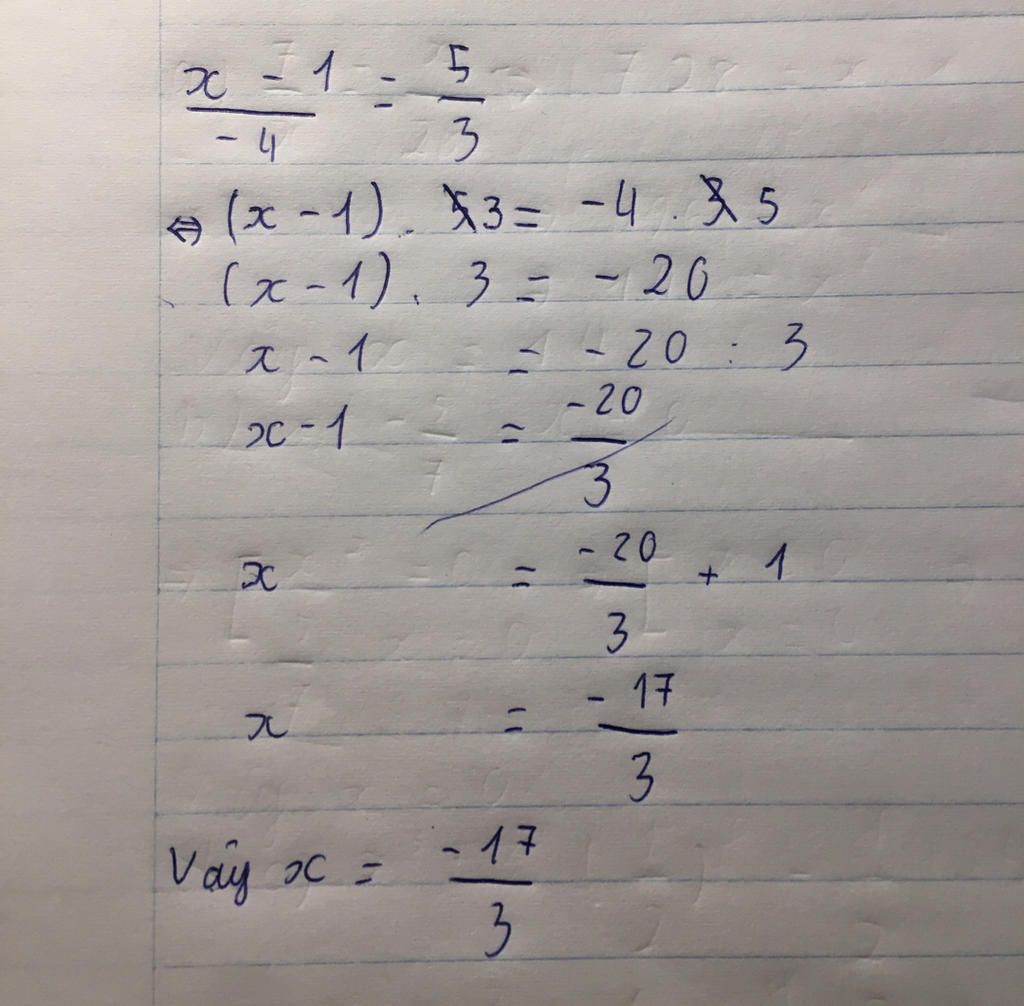 x - 1 / -4 = 5 / 3
⇔ (x - 1) . 3 = -4 . 5
(x - 1) . 3 = - 20
x - 1 = - 20 : 3
x - 1 = -20 / 3
x = -20 / 3 + 1
x = -17 / 3
Vậy x = -17 / 3